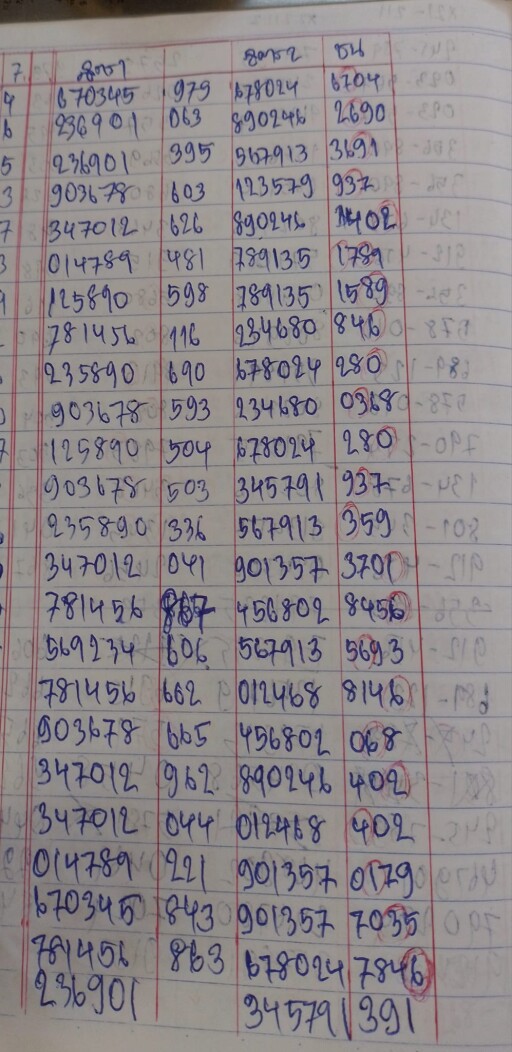 7. สูตร1 สูตร2 ชน
4 670345 979 678024 6704
6 236901 063 890246 2690
5 236901 395 567913 3691
3 903678 603 123579 937
7 347012 626 890246 402
3 014789 481 789135 1789
9 125890 598 789135 1589
781456 116 234680 846
235890 690 678024 280
903678 593 234680 0368
7 125890 504 678024 280
903678 503 345791 937
235890 336 567913 359
347012 041 901357 3701
781456 867 456802 8456
569234 606 567913 5693
781456 662 012468 8146
903678 665 456802 068
347012 962 890246 402
347012 044 012468 402
014789 221 901357 0179
670345 843 901357 7035
781456 863 678024 7846
236901 345791 391